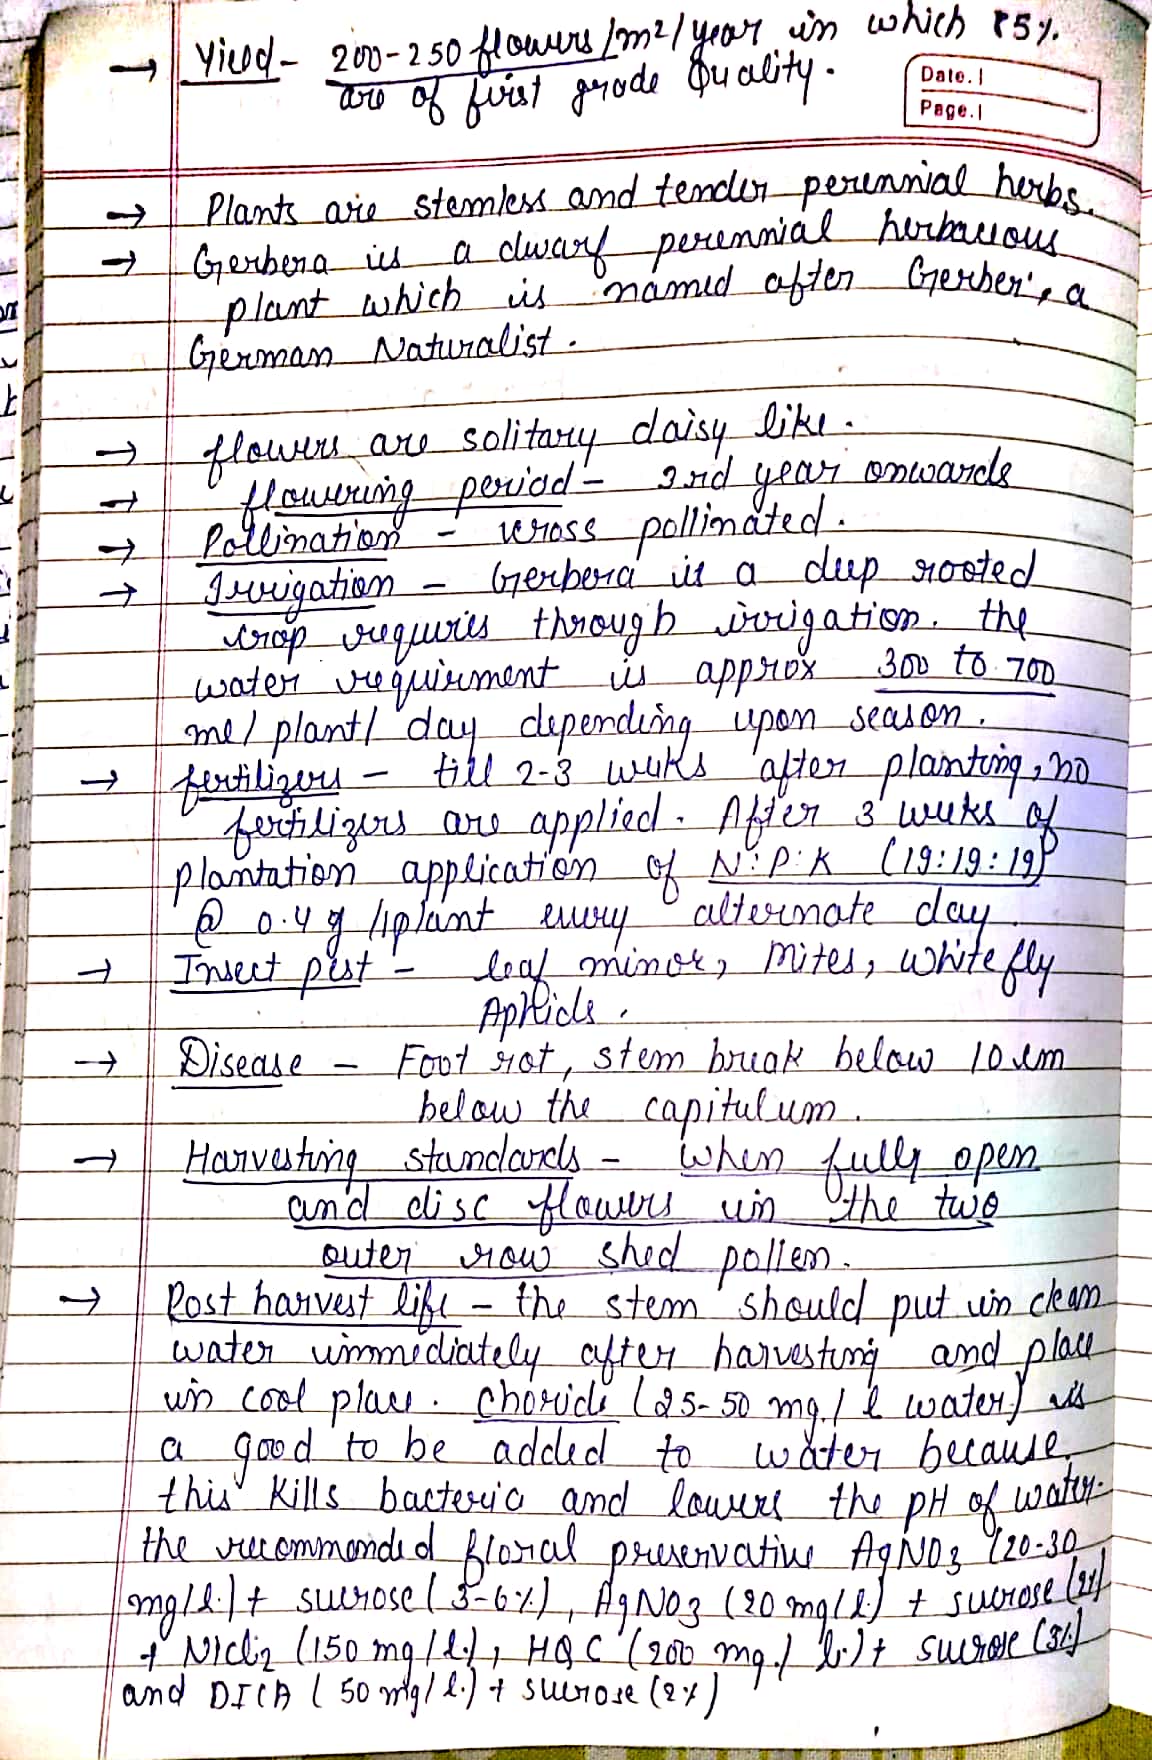 → Yield - 200-250 flowers/m2/year in which 85%
are of first grade Quality.
Date.
Page.
→ Plants are stemless and tender perennial herbs.
→ Gerbera is a dwarf perennial herbaceous
plant which is named after Gerber', a
German Naturalist.
→ flowers are solitary daisy like.
→ flowering period - 3rd year onwards
→ Pollination - cross pollinated.
→ Irrigation - Gerbera is a deep rooted
crop requires through irrigation. the
water requirment is approx 300 to 700
ml/plant/ day depending upon season.
→ fertilizers - till 2-3 weeks after planting, no
fertilizers are applied. After 3 weeks of
plantation application of N:P:K (19:19:19)
@ 0.4 g /plant every alternate day.
→ Insect pest - leaf minor, Mites, White fly
Aphids.
→ Disease - Foot rot, stem break below 10 cm
below the capitulum.
→ Harvesting standards - when fully open
and disc flowers in the two
outer row shed pollen.
→ Post harvest life - the stem should put in clean
water immediately after harvesting and place
in cool place. Choride (25-50 mg./ l water) is
a good to be added to water because
this kills bacteria and lowers the pH of water.
the recommonded floral preservative AgNO3 (20-30
mg/l.) + sucrose (3-6%), AgNO3 (20 mg/l.) + sucrose (2%)
+ NiCl2 (150 mg/l.), HQC (200 mg./ l.) + sucrose (3%)
and DICA (50 mg/l.) + sucrose (2%)